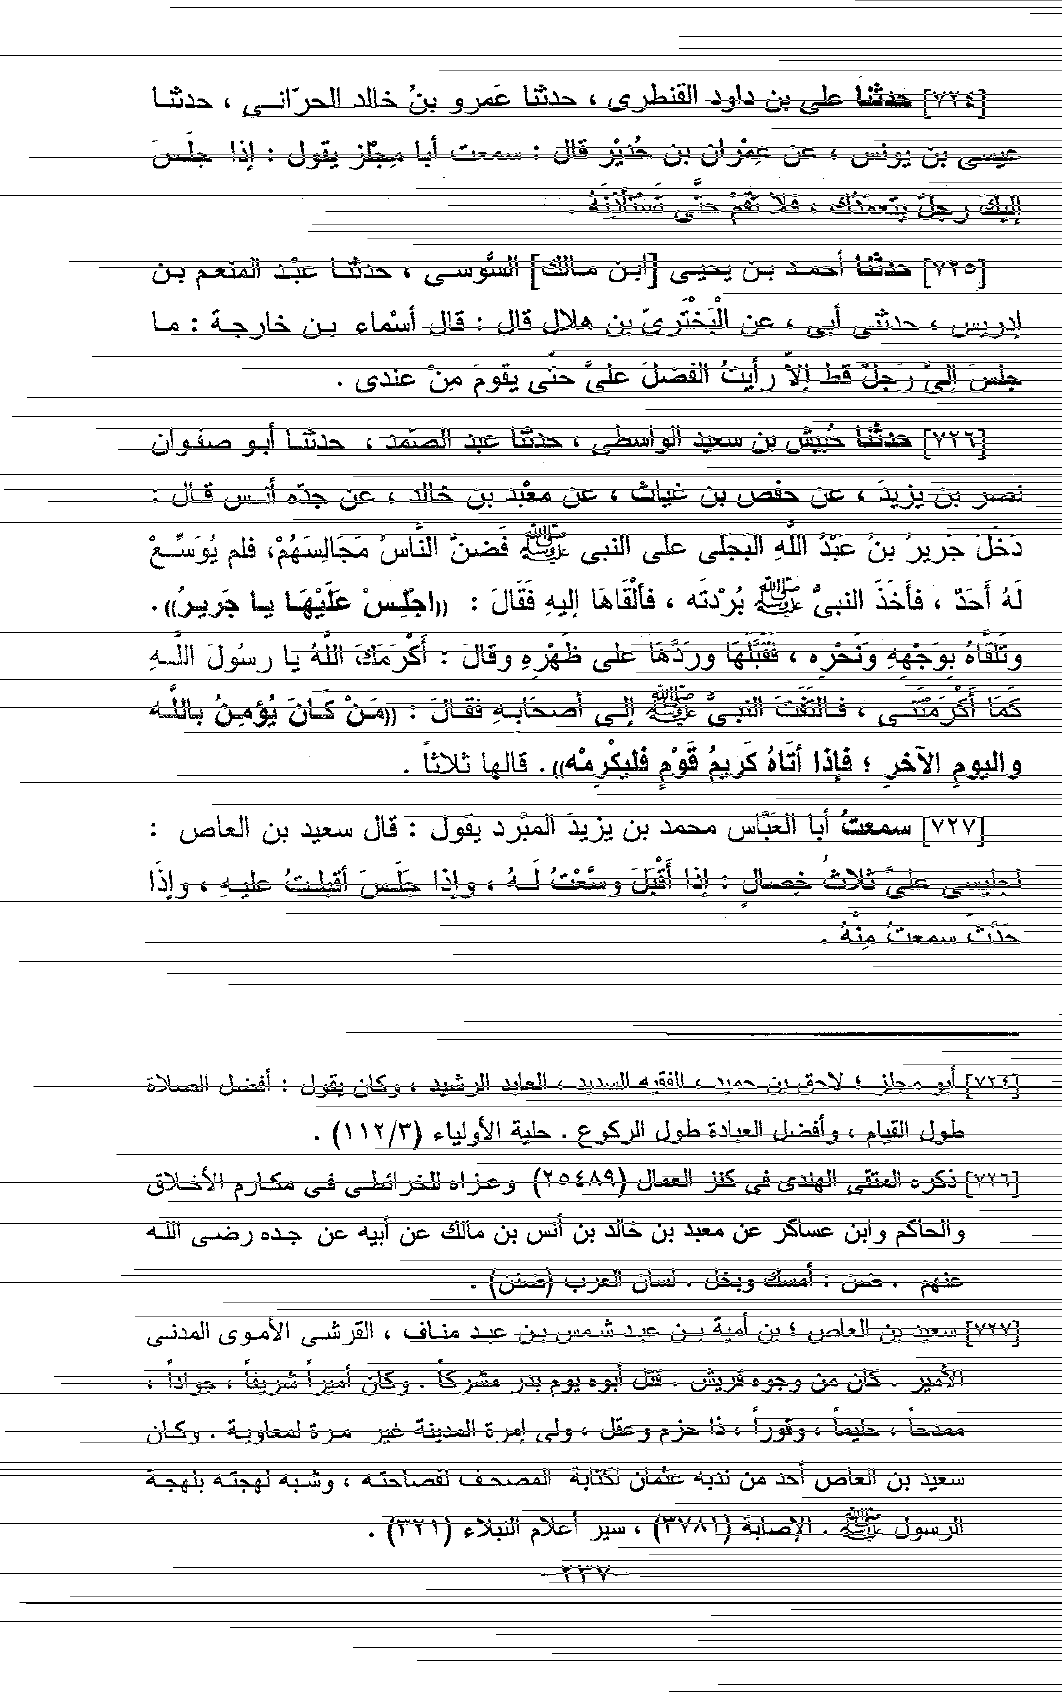 [٧٢٤] حدثنا على بن داود القنطرى ، حدثنا عَمرو بنُ خالد الحرّانى ، حدثنا
عيسى بن يونس ، عن عِمْران بن حُدَيْر قال : سمعت أبا مِجْلَز يقول : إذا جلَسَ
إليكَ رجلٌ يتعمدُك ، فلا تَقُمْ حتَّى تَسْتَأْذِنَهُ .
[٧٢٥] حدثنا أحمد بن يحيى [ابن مالك] السُّوسى ، حدثنا عبْد المنعم بن
إدريس ، حدثنى أبى ، عن الْبَخْتَرىّ بن هلال قال : قال أسْماء بن خارجة : ما
جلسَ إلىَّ رَجلٌ قط إلاّ رأيتُ الفضلَ علىَّ حتَّى يقومَ مِنْ عندى .
[٧٢٦] حدثنا حُبيش بن سعيد الواسطى ، حدثنا عبد الصَّمد ، حدثنا أبو صفوان
نصر بن يزيدَ ، عن حفص بن غياث ، عن معْبد بن خالد ، عن جدِّه أنس قال :
دَخَلَ جَريرُ بنُ عَبْدُ اللَّهِ البَجلَى على النبى ﷺ فَضنَّ النَّاسُ مَجَالِسَهُمْ، فلم يُوَسِّعْ
لَهُ أحَدٌ ، فأخَذَ النبىُّ ﷺ بُرْدتَه ، فألْقَاهَا إليهِ فَقَالَ : ((اجْلِسْ عَلَيْهَا يا جَريرُ)).
وتَلَقَّاهُ بوَجْههِ ونَحْرِه ، فَقَبَّلَهَا وردَّهَا على ظَهْرِهِ وقالَ : أكْرَمَكَ اللَّهُ يا رسُولَ اللَّهِ
كَمَا أكْرَمْتَنى ، فالتَفَتَ النبىُّ ﷺ إلى أصحَابِهِ فقالَ : ((مَنْ كَانَ يُؤمِنُ باللَّه
واليومِ الآخرِ ؛ فإذا أتَاهُ كَريمُ قَوْمٍ فَليكْرِمْه)). قالها ثلاثاً .
[٧٢٧] سمعتُ أبا العَبَّاس محمد بن يزيدَ المبَّرد يقول : قال سعيد بن العاص :
لجليسى علىَّ ثلاثُ خِصالٍ : إذا أقْبَلَ وسَّعْتُ لَهُ ، وإذا جلَسَ أقبلتُ عليهِ ، وإذَا
حَدّثَ سمعتُ مِنْهُ .
[٧٢٤] أبو مجلز ؛ لاحق بن حميد ، الفقيه السديد ، العابد الرشيد ، وكان يقول : أفضل الصلاة
طول القيام ، وأفضل العبادة طول الركوع . حلية الأولياء (١١٢/٣) .
[٧٢٦] ذكره المتقى الهندى فى كنز العمال (٢٥٤٨٩) وعزاه للخرائطى فى مكارم الأخلاق
والحاكم وابن عساكر عن معبد بن خالد بن أنس بن مالك عن أبيه عن جده رضى الله
عنهم . ضن : أمسك وبخل . لسان العرب (ضنن) .
[٧٢٧] سعيد بن العاص ؛ بن أمية بن عبد شمس بن عبد مناف ، القرشى الأموى المدنى
الأمير . كان من وجوه قريش . قتل أبوه يوم بدر مشركاً . وكان أميراً شريفاً ، جواداً ،
ممدحاً ، حليماً ، وقوراً ، ذا حزم وعقل ، ولى إمرة المدينة غير مرة لمعاوية . وكان
سعيد بن العاص أحد من ندبه عثمان لكتابة المصحف لفصاحته ، وشبه لهجته بلهجة
الرسول ﷺ . الإصابة (٣٧٨١) ، سير أعلام النبلاء (٣٢١) .
-٢٣٧-